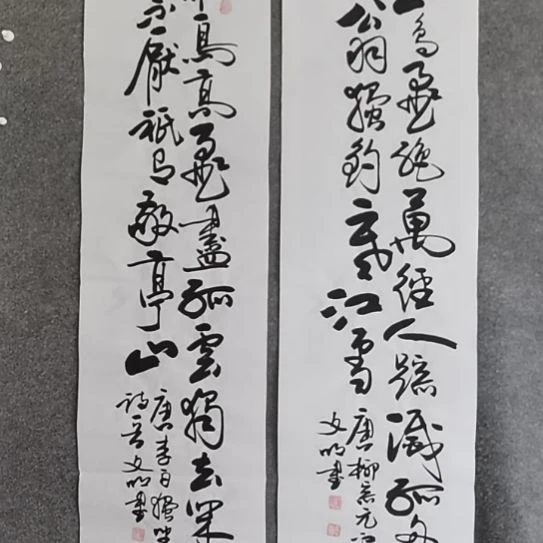 鳥飛絶萬徑人踪滅孤舟
翁獨釣寒江雪
唐柳宗元
文明書
鳥高飛盡孤雲獨去
不厭祇有敬亭山
唐李白獨坐
詩一首文明書